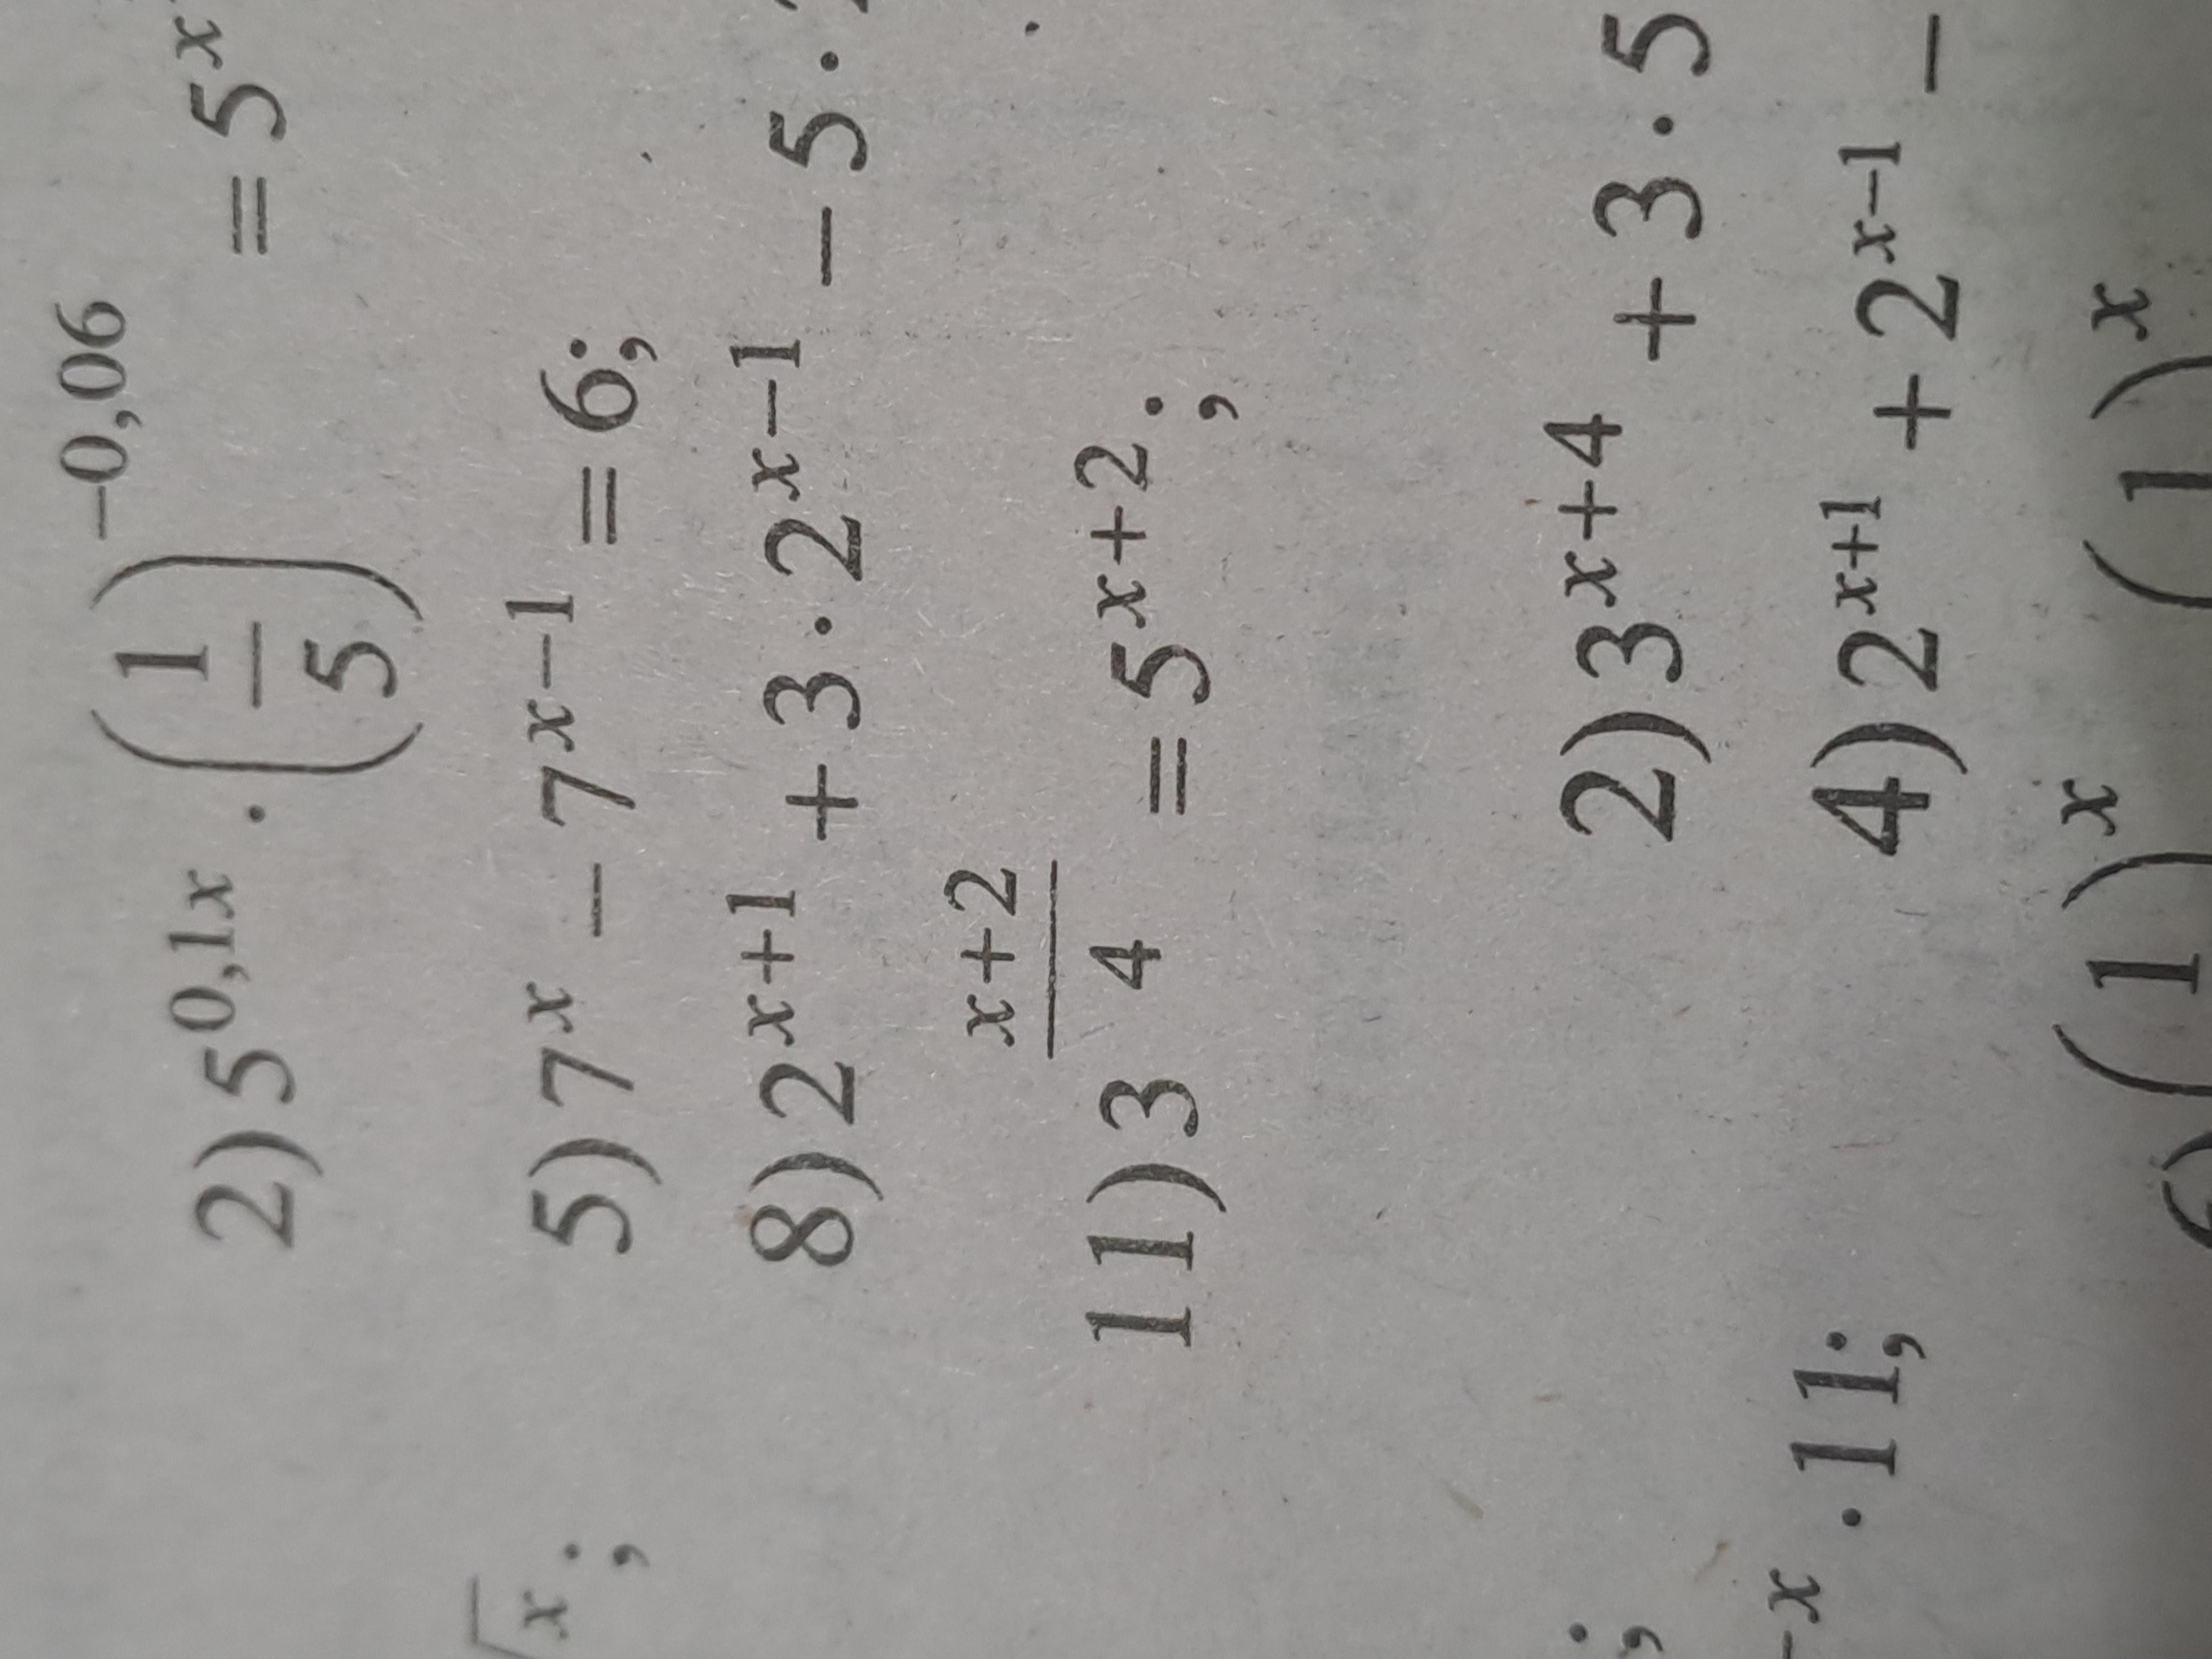 2) 5^{0,1x} · (1/5)^{-0,06} = 5^x
√x;
5) 7^x − 7^{x−1} = 6;
8) 2^{x+1} + 3 · 2^{x−1} − 5 ·
11) 3^{\frac{x+2}{4}} = 5^{x+2};
; 2) 3^{x+4} + 3 · 5
−x · 11; 4) 2^{x+1} + 2^{x−1} −
(1)^x (1)^x